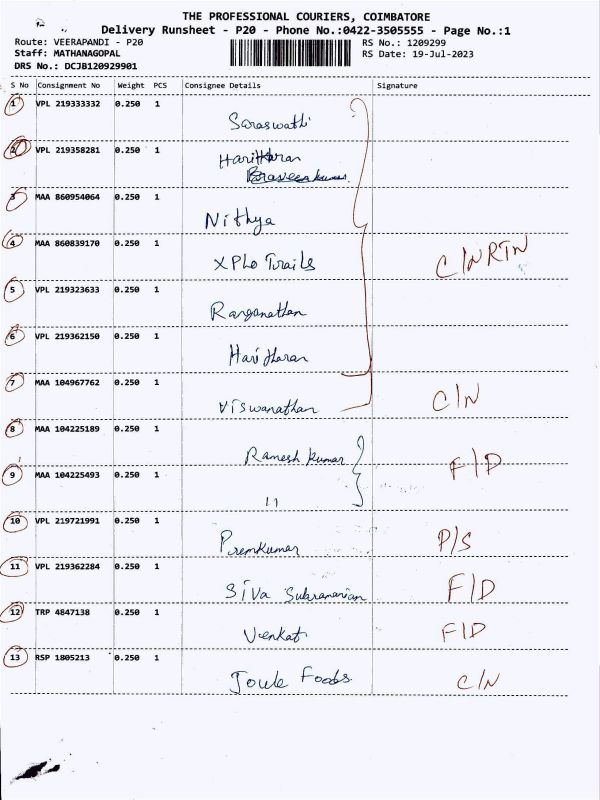 THE PROFESSIONAL COURIERS, COIMBATORE
Delivery Runsheet - P20 - Phone No.:0422-3505555 - Page No.:1
Route: VEERAPANDI - P20 RS No.: 1209299
Staff: MATHANAGOPAL RS Date: 19-Jul-2023
DRS No.: DCJB120929901
S No Consignment No Weight PCS Consignee Details Signature
1 VPL 219333332 0.250 1
Saraswathi
2 VPL 219358281 0.250 1
Hariharan
3 MAA 860954064 0.250 1
Nithya
4 MAA 860839170 0.250 1
XPLo Trails C/N RTN
5 VPL 219323633 0.250 1
Ranganathan
6 VPL 219362150 0.250 1
Hariharan
7 MAA 104967762 0.250 1
Viswanathan C/N
8 MAA 104225189 0.250 1
Ramesh Kumar F/D
9 MAA 104225493 0.250 1
11
10 VPL 219721991 0.250 1
Premkumar P/S
11 VPL 219362284 0.250 1
Siva Subramanian F/D
12 TRP 4847138 0.250 1
Venkat F/D
13 RSP 1805213 0.250 1
Joule Foods C/N